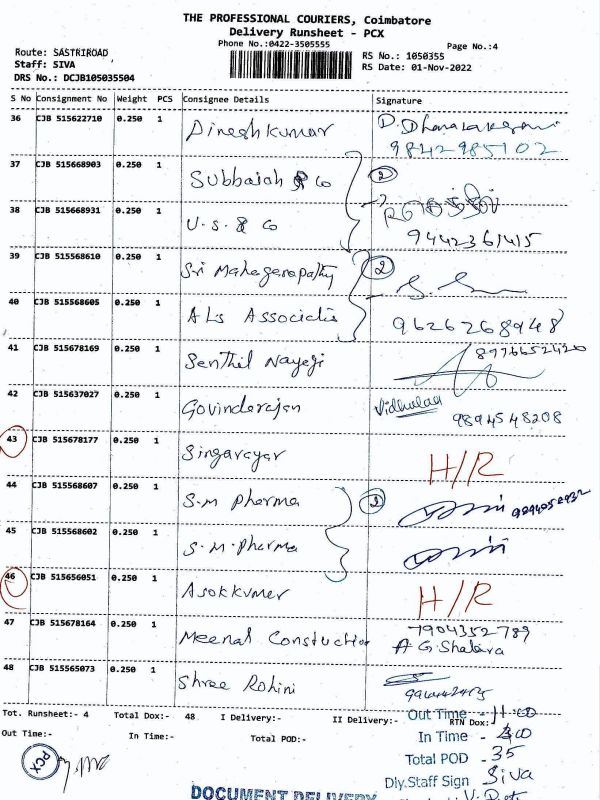 THE PROFESSIONAL COURIERS, Coimbatore
Delivery Runsheet - PCX
Phone No.:0422-3505555
Page No.:4
Route: SASTRIROAD
Staff: SIVA
DRS No.: DCJB105035504
RS No.: 1050355
RS Date: 01-Nov-2022
S No Consignment No Weight PCS Consignee Details Signature
36 CJB 515622710 0.250 1 Dineshkumar
9842985102
37 CJB 515668903 0.250 1 Subbaiah & Co 2
38 CJB 515668931 0.250 1 U.S. & Co
9442361415
39 CJB 515568610 0.250 1 Sri Mahaganapathy 2
40 CJB 515568605 0.250 1 ALS Associatis 9626268948
41 CJB 515678169 0.250 1 Senthil Nayagi 8976652420
42 CJB 515637027 0.250 1 Govindarajan
9894548208
43 CJB 515678177 0.250 1 Singarayar H/R
44 CJB 515568607 0.250 1 S.M Pharma
45 CJB 515568602 0.250 1 S.M.Pharma
46 CJB 515656051 0.250 1 Asokkumar H/R
47 CJB 515678164 0.250 1 Meenal Constuction 7904352789
48 CJB 515565073 0.250 1 Shree Rohini
Tot. Runsheet:- 4 Total Dox:- 48 I Delivery:- II Delivery:- RTN Dox:-
Out Time:- In Time:- Total POD:-
Out Time -
In Time -
Total POD - 35
Dly.Staff Sign Siva
PCX
DOCUMENT DELIVERY